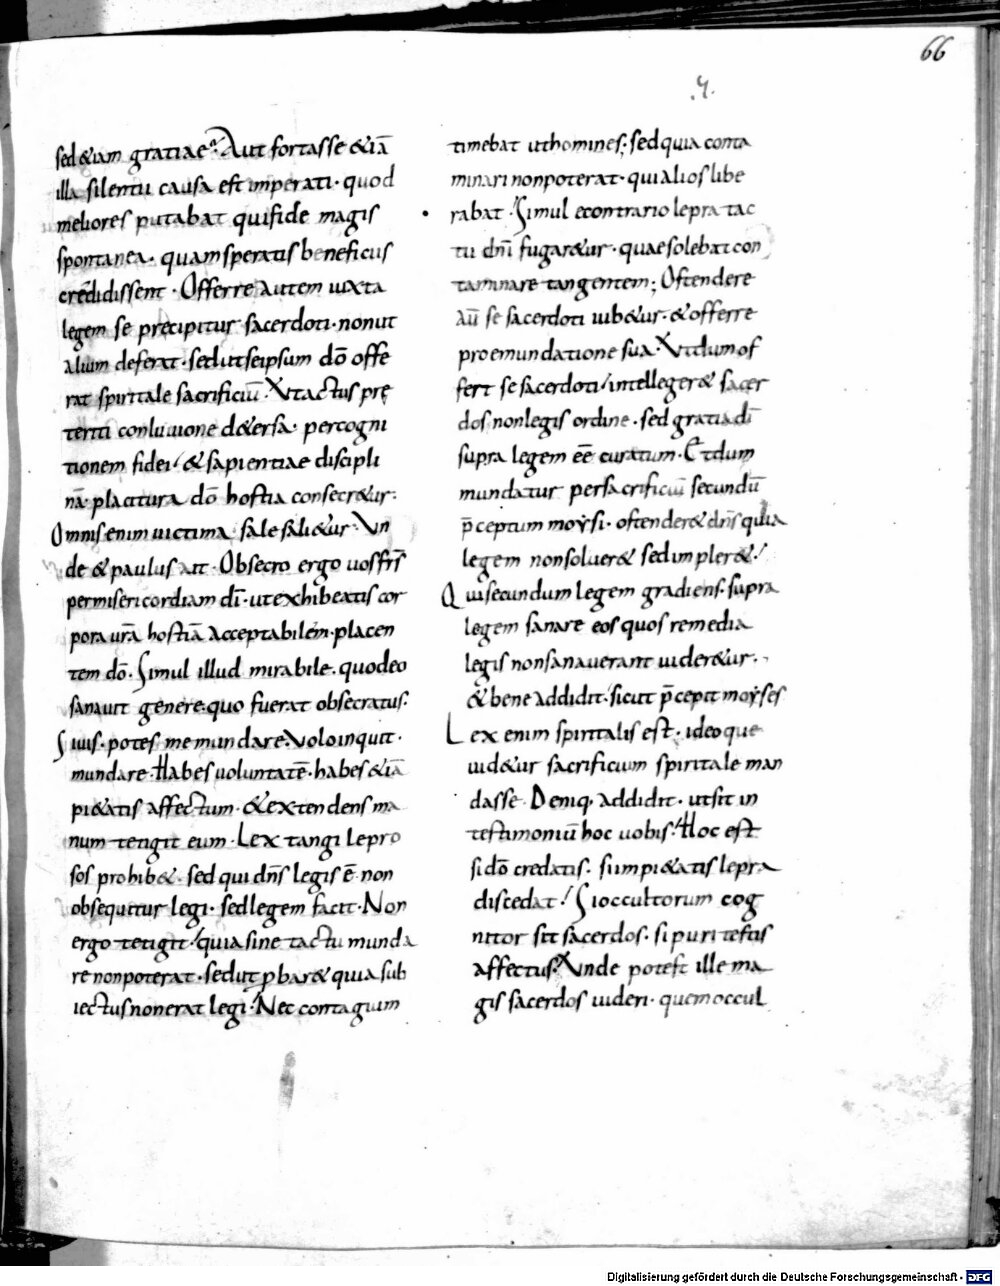 66
.4.
sed &iam gratiae. Aut fortasse &iā
illa silentii causa est imperati. quod
meliores putabat qui fide magis
spontanea. quam speratis beneficiis
credidissent. Offerre autem iuxta
legem se precipitur sacerdoti. non ut
alium deferat. sed ut se ipsum dō offe
rat spiritale sacrificiū. Ut actus prę
teriti conluuione d&ersa. per cogni
tionem fidei / & sapientiae discipli
nā. placitura dō hostia consecr&ur.
Omnis enim uictima. sale sali&ur. Un
de & paulus ait. Obsecro ergo uos frs̄
per misericordiam dī. ut exhibeatis cor
pora urā hostiā acceptabilem. placen
tem dō. Simul illud mirabile. quod eo
sanauit genere. quo fuerat obsecratus.
Si uis. potes me mundare. Volo inquit.
mundare. Habes uoluntatē. habes &iā
pi&atis affectum. & extendens ma
num tetigit eum. Lex tangi lepro
sos prohib&. sed qui dn̄s legis ē non
obsequitur legi. sed legem facit. Non
ergo tetigit / quia sine tactu munda
re non poterat. sed ut p bar& quia sub
iectus non erat legi. Nec contagium
timebat ut homines; sed quia conta
minari non poterat. qui alios libe
rabat. Simul econtrario lepra tac
tu dnī fugar&ur. quae solebat con
taminare tangentem; Ostendere
aū se sacerdoti iub&ur. & offerre
pro emundatione sua. Ut dum of
fert se sacerdoti / intelleger& sacer
dos non legis ordine. sed gratia dī
supra legem eē curatum. Et dum
mundatur per sacrificiū secundū
p̄ceptum moẏsi. ostender& dn̄s quia
legem non soluer& sed impler&!
Qui secundum legem gradiens. supra
legem sanare eos quos remedia
legis non sanauerant uider&ur.
& bene addidit. sicut p̄cepit moẏses
Lex enim spiritalis est. ideoque
uid&ur sacrificium spiritale man
dasse. Deniq. addidit. ut sit in
testimoniū hoc uobis! Hoc est
si dō credatis. si impi&atis lepra
discedat! Si occultorum cog
nitor sit sacerdos. si puri testis
affectus. Unde potest ille ma
gis sacerdos uideri. quem occul
Digitalisierung gefördert durch die Deutsche Forschungsgemeinschaft - DFG